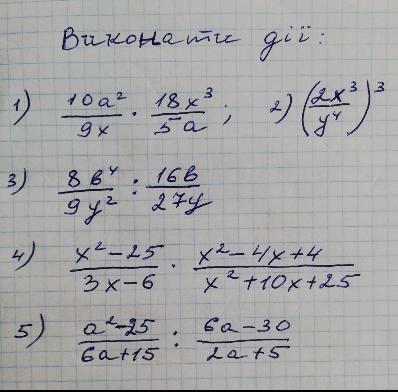 Виконати дії:
1) 10a²/9x · 18x³/5a ; 2) (2x³/y⁴)³
3) 8в⁴/9y² : 16в/27y
4) x²-25/3x-6 · x²-4x+4/x²+10x+25
5) a²-25/6a+15 : 6a-30/2a+5